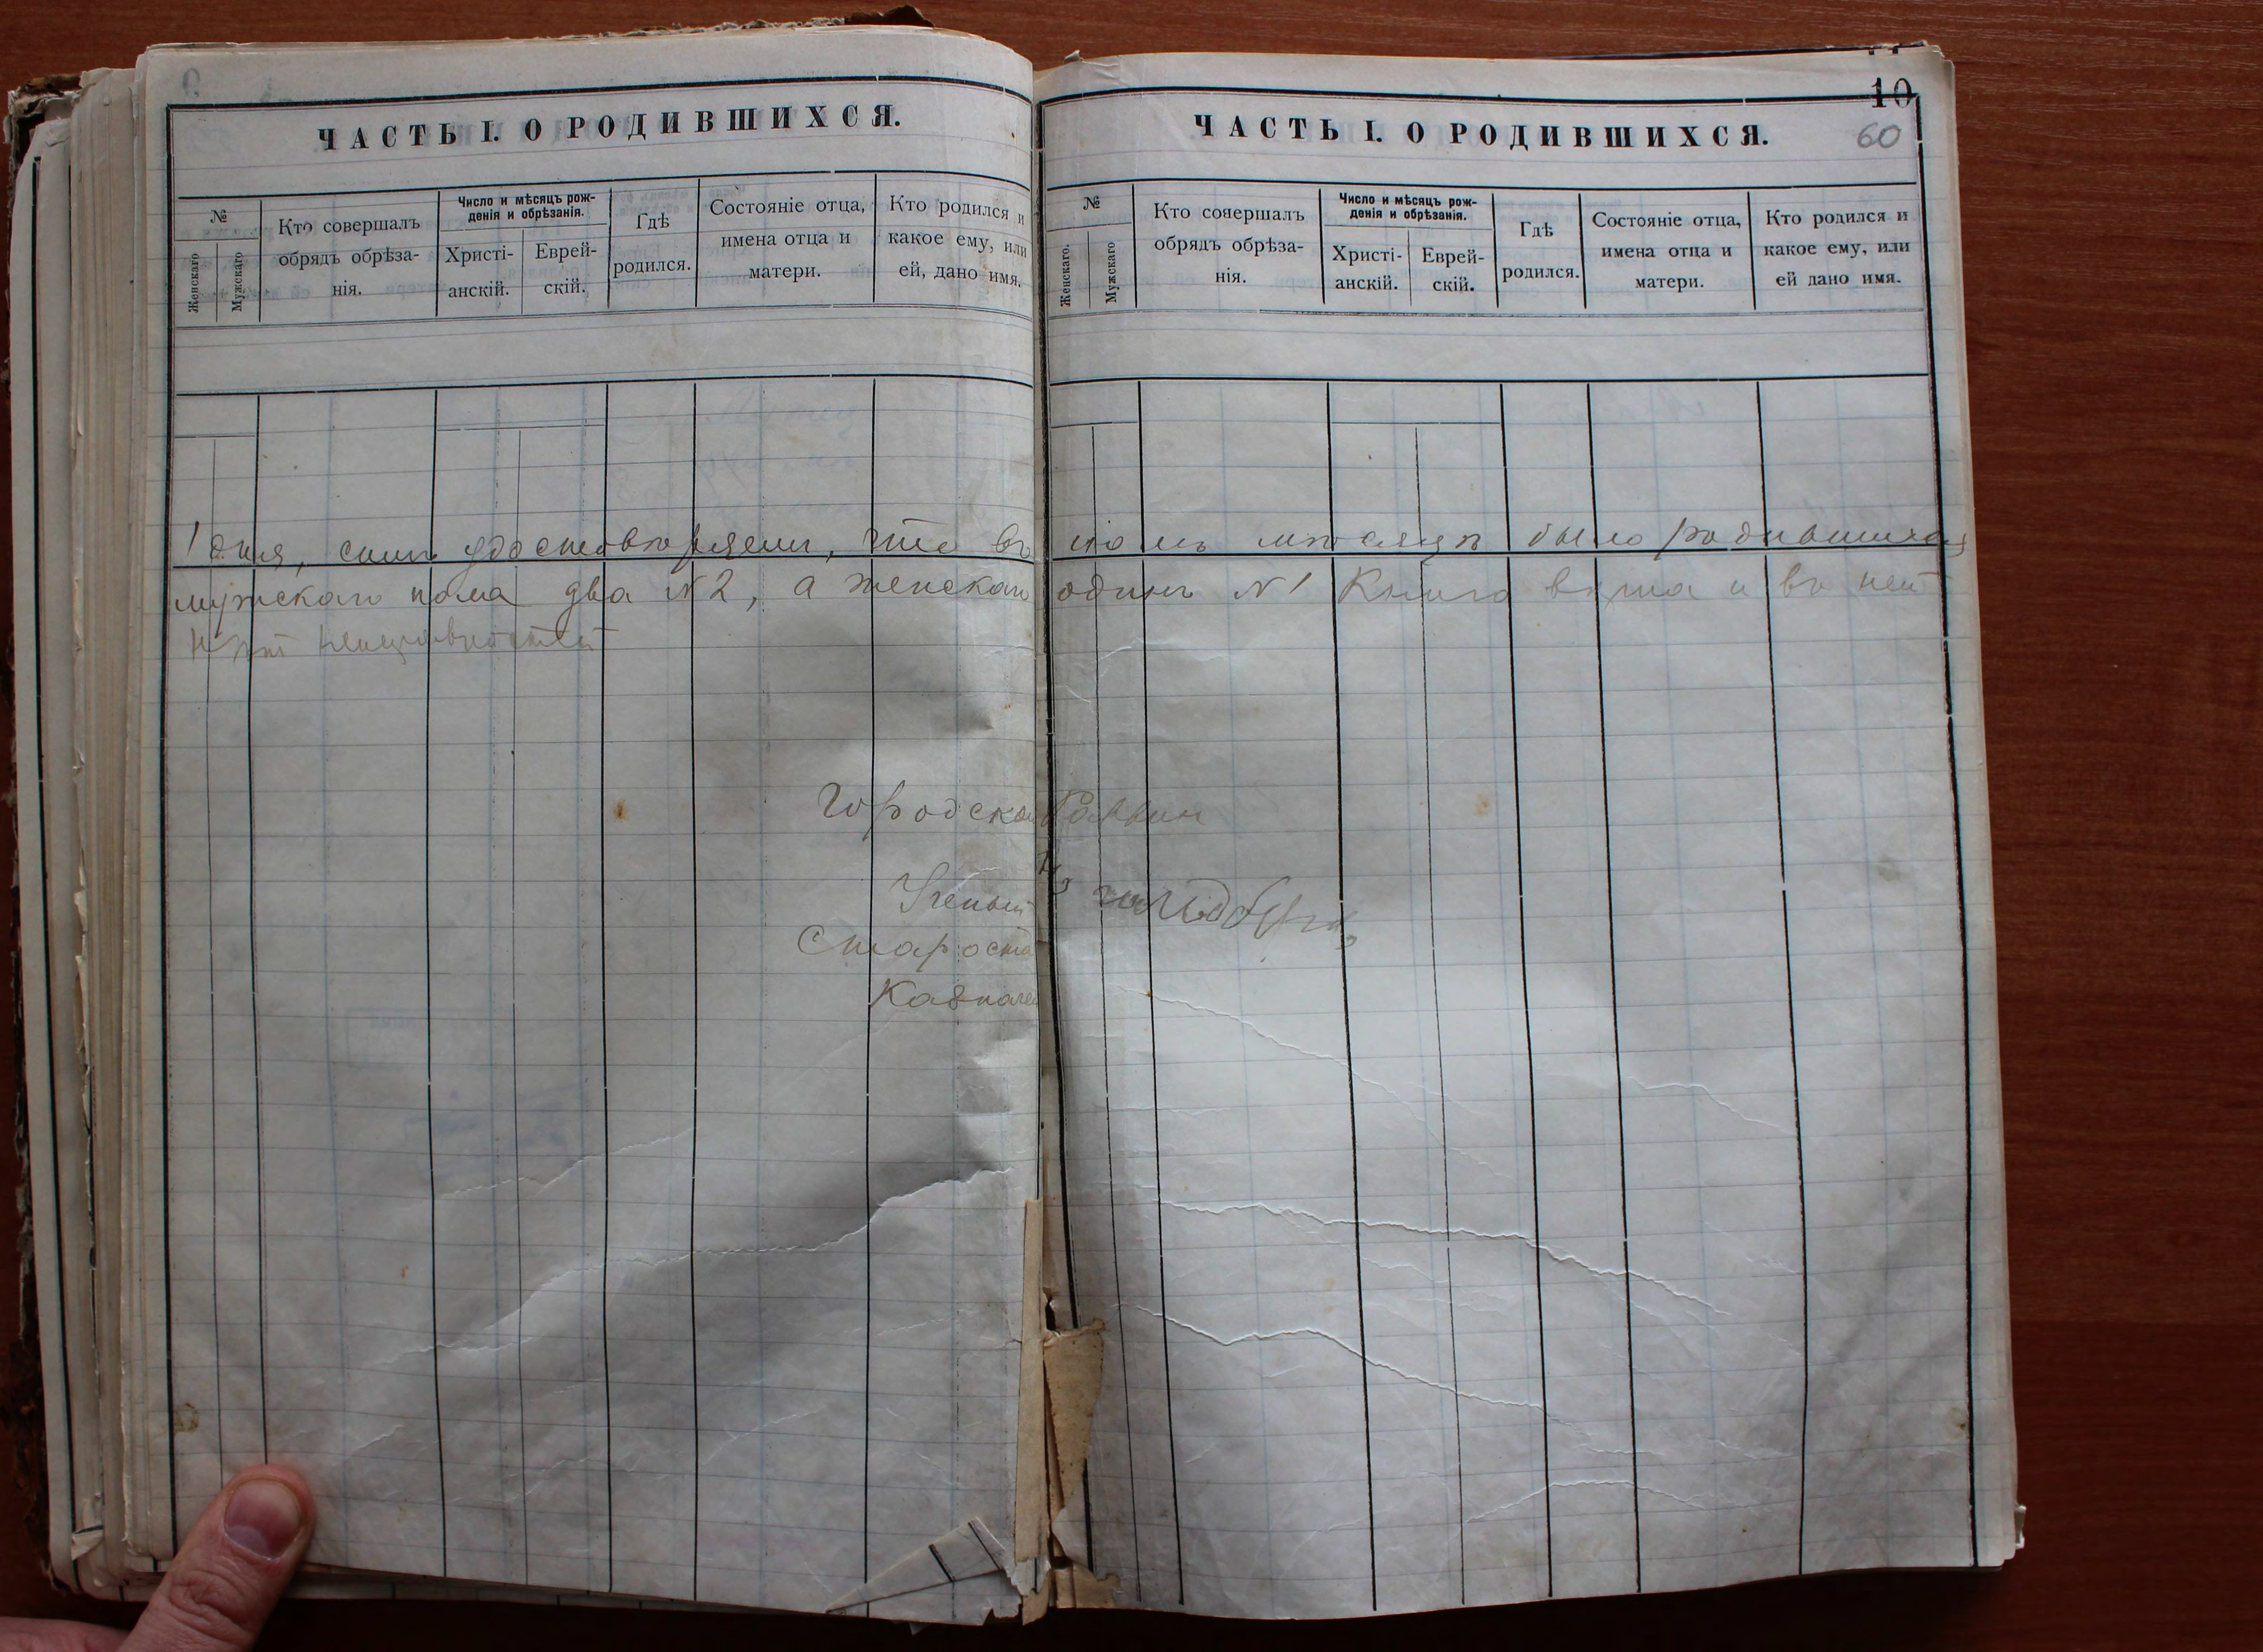 ЧАСТЬ I. О РОДИВШИХСЯ.
№
Женскаго
Мужскаго
Кто совершалъ
обрядъ обрѣза-
нія.
Число и мѣсяцъ рож-
денія и обрѣзанія.
Христі-
анскій.
Еврей-
скій.
Гдѣ
родился.
Состояніе отца,
имена отца и
матери.
Кто родился и
какое ему, или
ей, дано имя.
10
60
ЧАСТЬ I. О РОДИВШИХСЯ.
№
Женскаго.
Мужскаго
Кто совершалъ
обрядъ обрѣза-
нія.
Число и мѣсяцъ рож-
денія и обрѣзанія.
Христі-
анскій.
Еврей-
скій.
Гдѣ
родился.
Состояніе отца,
имена отца и
матери.
Кто родился и
какое ему, или
ей дано имя.
1 дня, симъ удостовѣряемъ, что въ мѣсяцѣ было родившихся
мужскаго пола два №2, а женскаго одинъ №1 Книга и въ ней
нѣтъ неисправностей
Городской Раввин
Ученый
Староста
Казначей